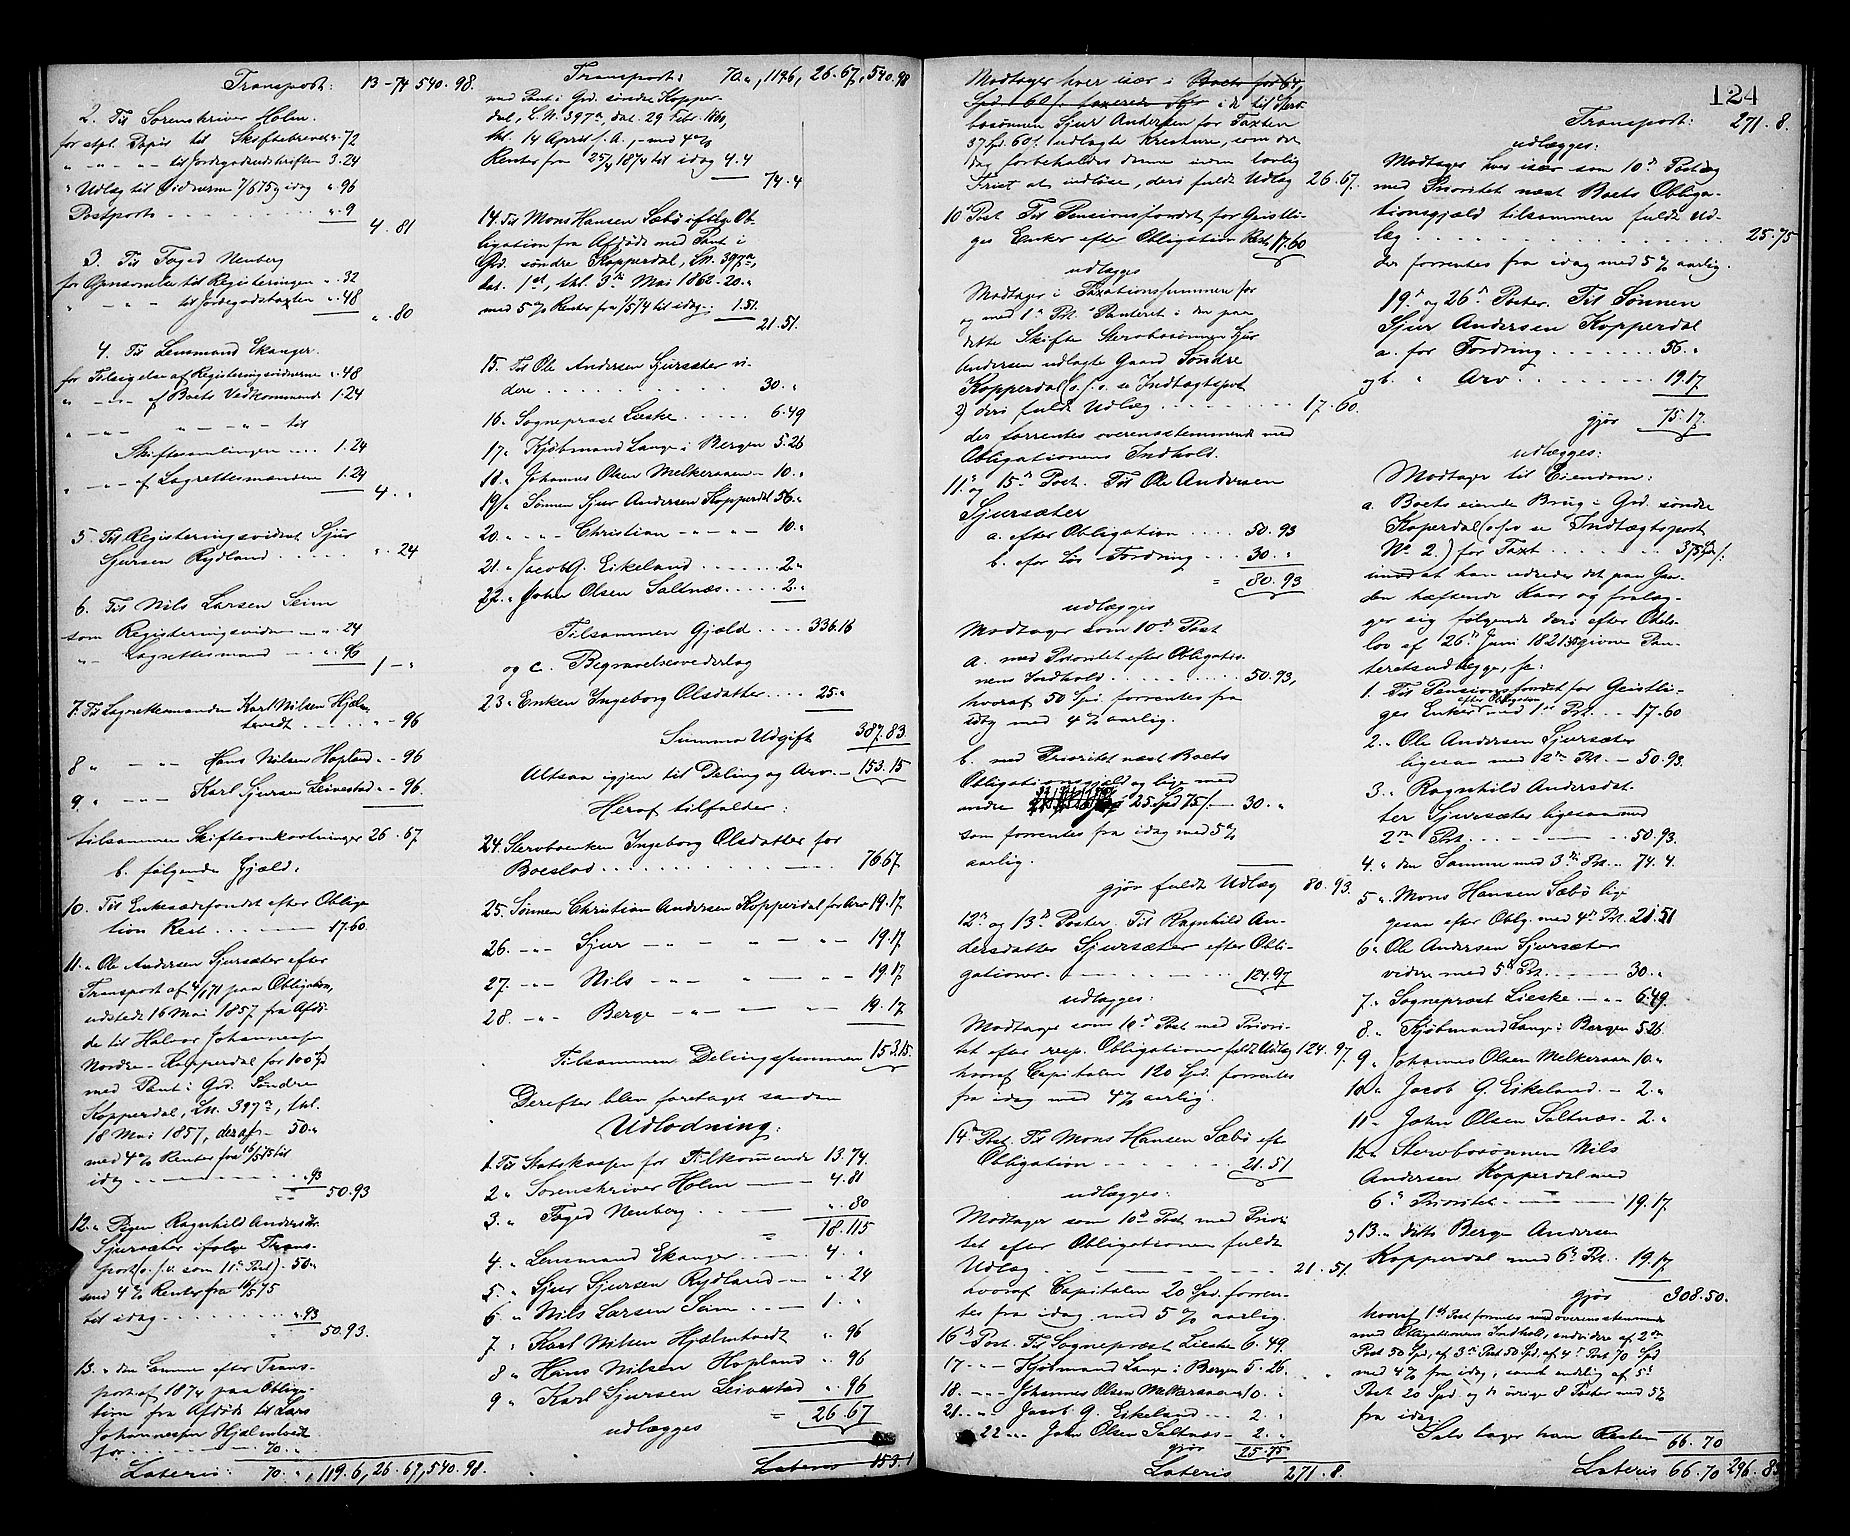 Transport: 13-74 540.98.
2. Til Sorenskriver Holm.
for stpl. Papir til Skiftebrevet „.72
„ -„- „ -„- til Jordegodsudskriften 3.24
„ Udlæg til Vidnerne 7/6 75 og idag „.96
Postporto . . . . „.9
4.81
3. Til Foged Neuberg
for Opnævnelse til Registeringen „.32
„ -„- „ til Jordegodstaxten „.48
„.80
4. Til Lensmand Ekanger.
for Tilsigelse af Registeringsvidnerne „.48
„ -„-„- af Boets Vedkommende 1.24
„ -„- „ -„-„- til
Skiftesamlingen . . . 1.24
„ -„- af Lagrettesmænden 1.24
4. „
5. Til Registeringsvidnet Sjur
Sjursen Rydland . . . . „.24
6. Til Nils Larsen Seim
som Registeringsvidne -„- „.24
„- Lagrettesmand -„- „.96
1-„
7. Til Lagrettesmanden Karl Nilsen Hjelm
tvedt . . . . „-96
8 „ -„- Hans Nilsen Hopland „-96
9. „ -„- Karl Sjursen Leivestad „-96.
tilsammen Skifteomkostninger 26.67
b. følgende Gjæld:
10. Til Enkesædefondet efter Obliga
tion Rest . . . 17.60
11. „ Ole Andersen Sjursæter efter
Transport af 4/6 71 paa Obligation,
udstedt 16 Mai 1857 fra Afdø-
de til Halvor Johannessen
Nordre-Kopperdal for 100 Spd
med Pant i Grd. Søndre
Kopperdal, L.N. 397a, thl.
18 Mai 1857, deraf - 50„
med 4% Renter fra 16/5 75 til
idag . . . „.93
50.93
12. „ Pigen Ragnhild Andersdtr.
Sjursæter ifølge Trans-
port (o.s.v. som 11te Post) 50„
med 4% Renter fra 16/5 75
til idag . . . „.93
50.93.
13. „ den Samme efter Trans-
port af 1874 paa Obliga-
tion fra Afdøde til Lars
Johannessen Hjælmtvedt
for . . . 70. „
Lateris: 70. „, 119.6, 26.67, 540.98.
Transport: 70„, 119.6, 26.67, 540.98
med Pant i Grd. søndre Kopper-
dal, L.N. 397a, dat. 29 Febr. 1860,
thl. 14 April s.A., - med 4%
Renter fra 25/4 1874 til idag 4.4
74.4
14. Til Mons Hansen Sæbø ifølge Ob-
ligation fra Afdøde med Pant i
Grd. søndre Kopperdal, L.N. 397a,
dat. 1st, thl. 3die Mai 1862 - 20.„
med 5% Renter fra 1/5 74 til idag . 1.51.
21.51.
15. Til Ole Andersen Sjursæter vi-
dere . . . . 30. „
16. „ Sogneprest Lieske . . . 6.49
17. „ Kjøbmand Lange i Bergen 5.26
18. „ Johannes Olsen Melkeraaen - 10.„
19. „ Sønnen Sjur Andersen Kopperdal 56.„
20. „ -„- Christian -„-„- 10.„
21. „ Jacob G. Eikeland . . . 2.„
22. „ John Olsen Saltnæs . . . 2.„
Tilsammen Gjæld . . . 336.16
og c. Begravelsesvederlag
23. „ Enken Ingeborg Olsdatter . . . 25„
Summa Udgift 387.83.
Altsaa igjen til Deling og Arv - 153.15
Heraf tilfalder:
24. Stervboenken Ingeborg Olsdatter for
Boeslod . . . 76.67.
25. Sønnen Christian Andersen Kopperdal for Arv 19.17
26. -„- Sjur -„- „ -„- 19.17
27. -„- Nils „ „ „ „ 19.17
28. -„- Berge -„- „ - „ 19.17
Tilsammen Delingssummen 153.15.
Derefter blev foretaget saadan
Udlodning:
1. Til Statskassen for Tilkommende 13.74.
2 „ Sorenskriver Holm —— 4.81
3. „ Foged Neuberg . . — „.80
= 18.115
4. „ Lensmand Ekanger — 4. „
5. „ Sjur Sjursen Rydland — „.24
6 „ Nils Larsen Seim . . — 1. „
7 „ Karl Nilsen Hjælmtvedt „.96
8 „ Hans Nilsen Hopland „.96
9 „ Karl Sjursen Leivestad „.96
= 26.67
udlægges
Lateris 153.1
124
Modtager hver især i Boets for 61
Spd. 60 s. taxerede Løsøre i de til Sterv-
bosønnen Sjur Andersen for Taxten
57 Spd. 60 s. udlagte Kreature, som det
dog forbeholdes denne inden lovlig
Frist at indløse, deri fuldt Udlæg 26.67.
10de Post. Til Pensionsfondet for Geistli-
ges Enker efter Obligation Rest 17.60
udlægges
Modtager i Taxationssummen for
og med 1ste Prt. Panteret i den paa
dette Skifte Stervbosønnen Sjur
Andersen udlagte Gaard Søndre
Kopperdal (o.s.v. se Indtægtspost
2) deri fuldt Udlæg . . . 17.60.
der forrentes overensstemmende med
Obligationens Indhold.
11te og 15de Post. Til Ole Andersen
Sjursæter
a. efter Obligation . . . 50.93
b. efter Løs Fordring . . . 30. „
= 80.93
udlægges
Modtager som 10de Post
a. med Prioritet efter Obligatio-
nens Indhold . . . 50.93,
hvoraf 50 Spd. forrentes fra
idag med 4% aarlig.
b. med Prioritet næst Boets
Obligationsgjæld og lige med
andre 25 Spd 75 s. — 30. „
som forrentes fra idag med 5%
aarlig.
gjør fuldt Udlæg 80.93.
12te og 13de Poster. Til Ragnhild An-
dersdatter Sjursæter efter Obli-
gationer. —— 124.97
udlægges:
Modtager som 10de Post med Priori-
tet efter resp. Obligationer fuldt Udlæg 124.97.
hvoraf Capitalen 120 Spd. forrentes
fra idag med 4% aarlig.
14de Post. Til Mons Hansen Sæbø efter
Obligation —— 21.51
udlægges:
Modtager som 10de Post med Priori-
tet efter Obligationen fuldt
Udlæg . —— 21.51.
hvoraf Capitalen 20 Spd. forren-
tes fra idag med 5% aarlig.
16de Post. Til Sogneprest Lieske 6.49.
17 -„- Kjøbmand Lange i Bergen 5.26.
18. -„- Johannes Olsen Melkeraaen 10. „
21. -„- Jacob G. Eikeland . . . 2. „
22 -„- John Olsen Saltnæs . . . 2. „
gjør 25.75
Lateris 271.8.
Transport: 271.8.
udlægges:
Modtages hver især som 10de Post og
med Prioritet næst Boets Obliga-
tionsgjæld tilsammen fuldt Ud-
læg . . . . 25.75
der forrentes fra idag med 5% aarlig.
19de og 26de Poster. Til Sønnen
Sjur Andersen Kopperdal
a. for Fordring . . . 56. „
og b. „ Arv . . . 19.17
gjør 75.17.
udlægges:
Modtager til Eiendom:
a. Boets eiende Brug i Grd. søndre
Koperdal (o.s.v. se Indtægtspost
No. 2.) for Taxt . . . 375 Spd.
imod at han udreder det paa Gaar-
den hæftende Kaar og fralæg-
ger sig følgende deri efter Odels-
lov af 26de Juni 1821 givne Pan-
teretsudlægge, se:
1. Til Pensionsfondet for Geistli-
ges Enker efter Obligation med 1ste Prt. . . 17.60
2. „ Ole Andersen Sjursæter
ligesaa med 2den Prt. — 50.93.
3. „ Ragnhild Andersdat-
ter Sjursæter ligesaa med
2den Prt. . —— 50.93.
4 „ den Samme med 3die Prt. — 74.4.
5 „ Mons Hansen Sæbø lige-
gesaa efter Oblg. med 4de Prt. 21.51
6 „ Ole Andersen Sjursæter
videre med 5te Prt. — 30. „
7. „ Sogneprest Lieske . — „ 6.49.
8. „ Kjøbmand Lange i Bergen 5.26.
9 „ Johannes Olsen Melkeraaen 10.„
10. „ Jacob G. Eikeland . — 2. „
11. „ John Olsen Saltnæs - 2. „
12. „ Stervbosønnen Nils
Andersen Kopperdal med
6te Prioritet —— 19.17.
13. „ ditto Berge Andersen
Kopperdal med 6te Prt. 19.17
gjør 308.50.
hvoraf 1ste Post forrentes med overensstemmende
med Obligationens Indhold, endvidere af 2den
Post 50 Spd., af 3die Post 50 Spd. af 4de Post 70 Spd
med 4% fra idag, samt endelig af 5te
Post 20 Spd og de øvrige 8 Poster med 5%
fra idag.
Selv tager han Resten 66.70
Lateris 66.70 296.83